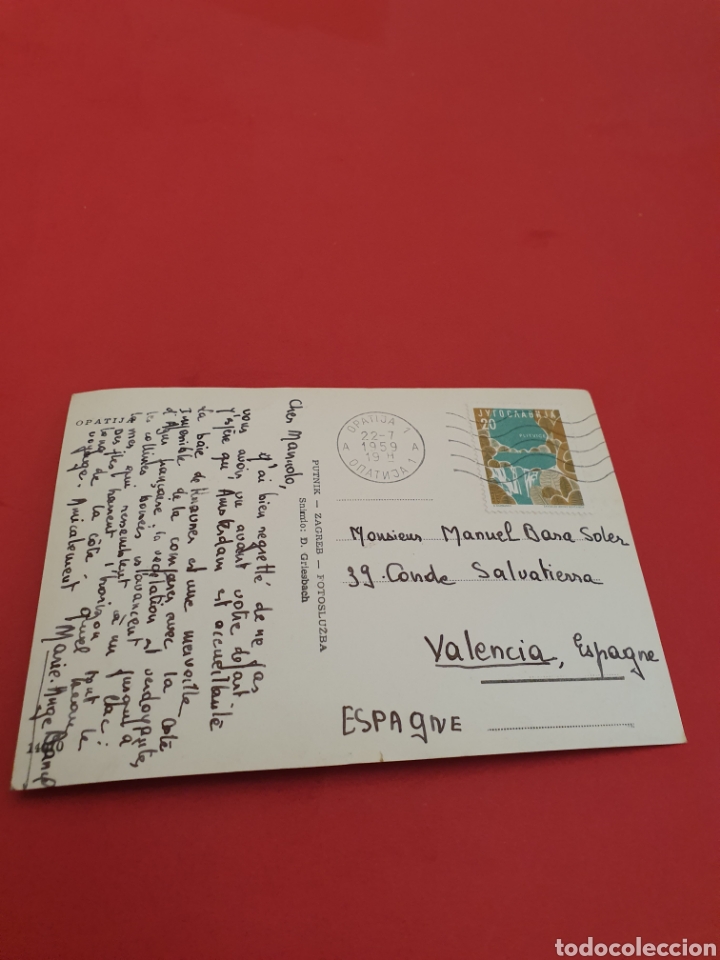 OPATIJA
Cher Manuolo,
J'ai bien regretté de ne pas
vous avoir vu avant votre départ
J'espère que Amsterdam est accueillante
La baie de est une merveille
Impossible de la comparer avec la Côte
d'Azur française : la végétation est verdoyante,
les collines boisées s'avancent jusqu'à
la mer qui ressemblent à un lac :
des îles barrent l'horizon tout le
long de la côte - quel beau
voyage. Amicalement Marie-Ange
PUTNIK — ZAGREB — FOTOSLUŽBA
Snimio: D. Griesbach
OPATIJA 1
A 22-7 A
1959
19 H
ОПАТИЈА 1
ЈУГОСЛАВИЈА
20
Monsieur Manuel Bara Soler
39. Conde Salvatierra
Valencia, Espagne
ESPAGNE
todocoleccion